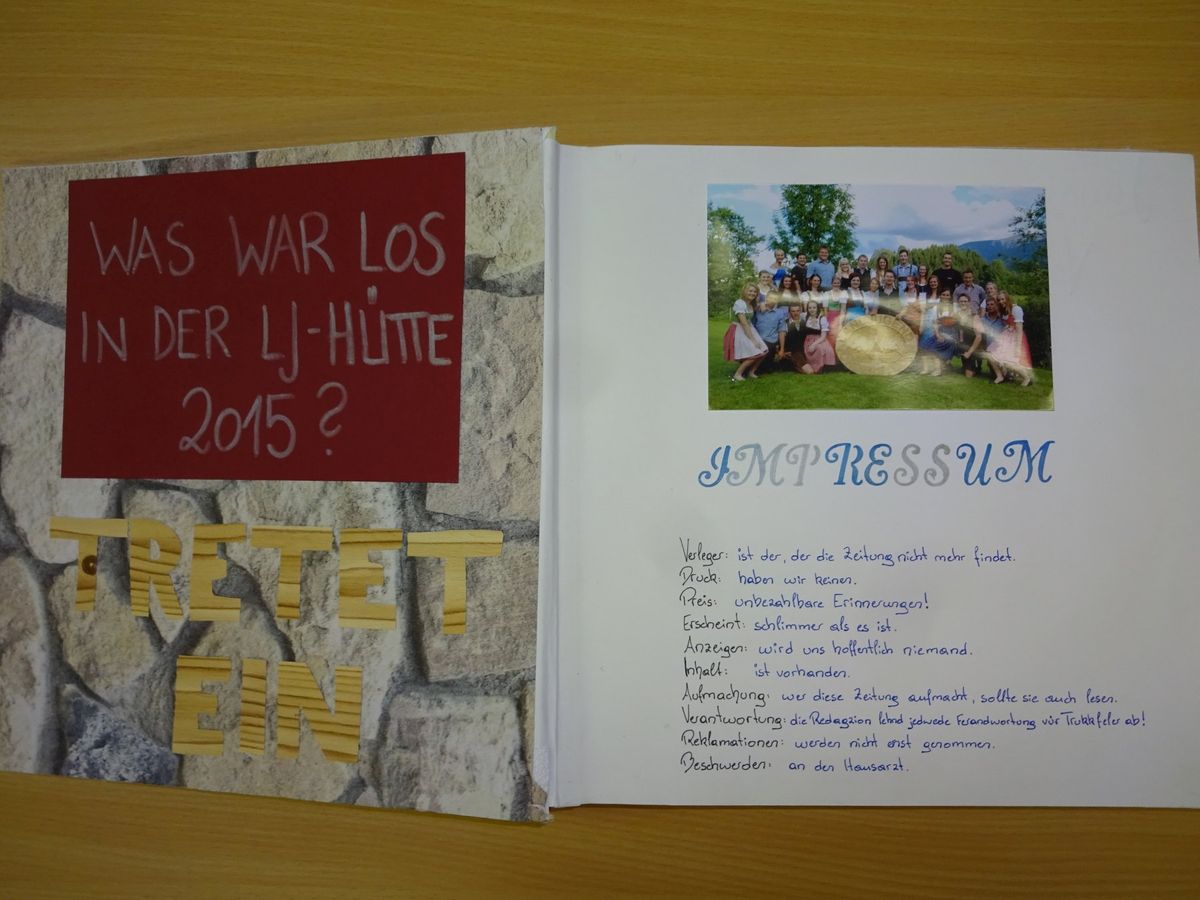 WAS WAR LOS
IN DER LJ-HÜTTE
2015?
TRETET
EIN
IMPRESSUM
Verleger: ist der, der die Zeitung nicht mehr findet.
Druck: haben wir keinen.
Preis: unbezahlbare Erinnerungen!
Erscheint: schlimmer als es ist.
Anzeigen: wird uns hoffentlich niemand.
Inhalt: ist vorhanden.
Aufmachung: wer diese Zeitung aufmacht, sollte sie auch lesen.
Verantwortung: die Redagzion lehnd jedwede Ferandwortung vür Trukkfeler ab!
Reklamationen: werden nicht ernst genommen.
Beschwerden: an den Hausarzt.